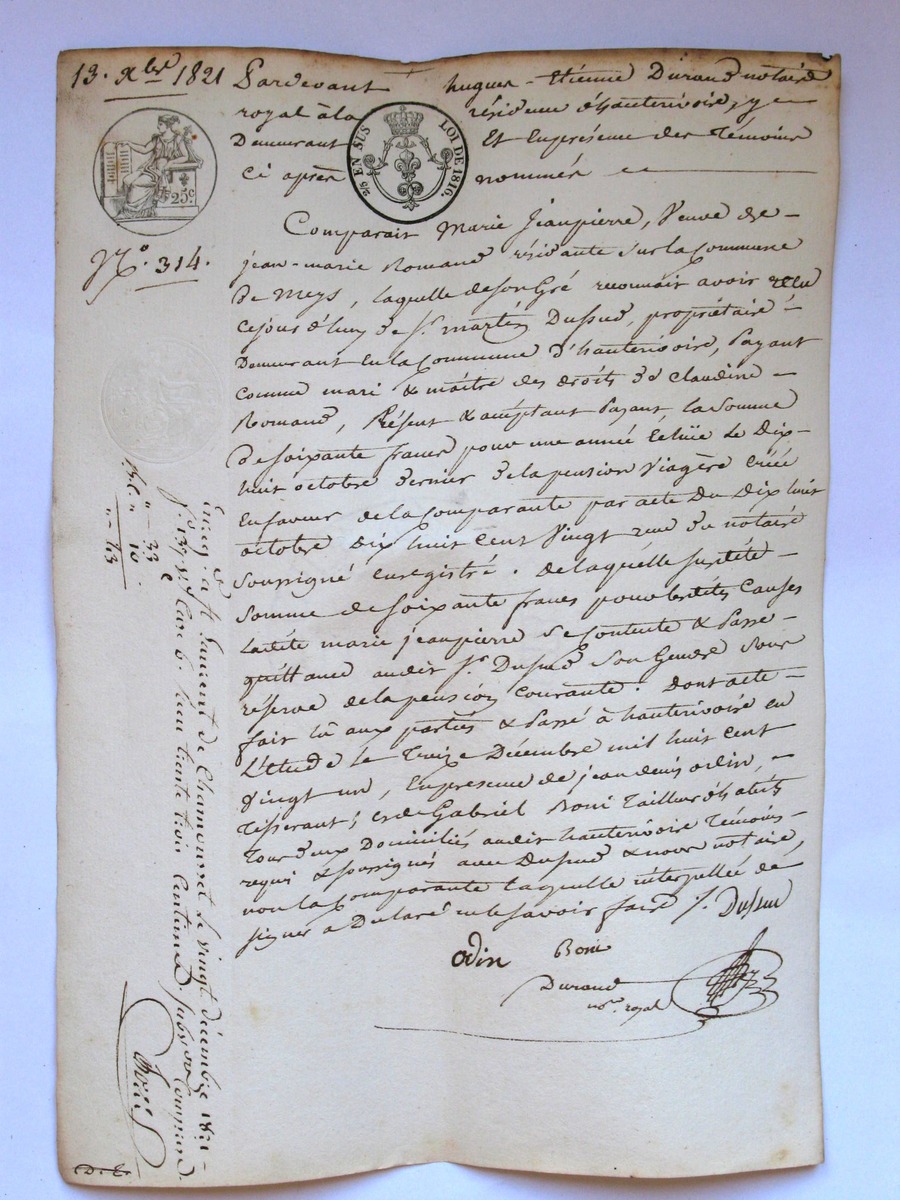 13. Xbre 1821 Pardevant hugues-Etienne Durand notaire
royal à la résidence d'hauterivoire, y
Demeurant Et En présence des Témoins
Ci après nommés
25 EN SUS LOI DE 1816.
25c.
No. 314.
Comparait Marie Jeanpierre, Veuve de
jean-marie Romand résidante Sur la Commune
De Meys, laquelle de son Gré reconnait avoir reçu
cejourd'huy de Sr. martin Dussud, propriétaire
Demeurant En la Commune D'hauterivoire, Payant
comme mari & maître des droits de Claudine
Romand, Présent & acceptant Payant, la Somme
De soixante francs pour une année Echue Le Dix
huit octobre dernier de la pension Viagère créée
En faveur de la Comparante par acte Du Dix huit
octobre Dix huit Cent Vingt reçu du notaire
Soussigné enregistré. De laquelle susdite
Somme de Soixante francs pour les dites Causes
Ladite marie jeanpierre Se Contente & Passe
quittance audit Sr. Dussud Son Gendre Sous
réserve de la pension Courante. Dont acte
fait lu aux parties & Passé à hauterivoire En
L'étude le Treize Décembre mil huit cent
Vingt un, En présence de jean denis odin,
Tisserant, et de Gabriel Boni Tailleur d'habits
Tous deux Domiciliés audit hauterivoire Témoins
requis & soussignés avec Dussud & nous notaire,
non la Comparante laquelle interpellée de
signer a Déclaré ne le savoir faire /. Dussud
odin Boni
Durand
nore. royal
33
10
43
Enreg. à St Laurent de Chamousset le vingt décembre 1821
trente trois centimes
D. E.